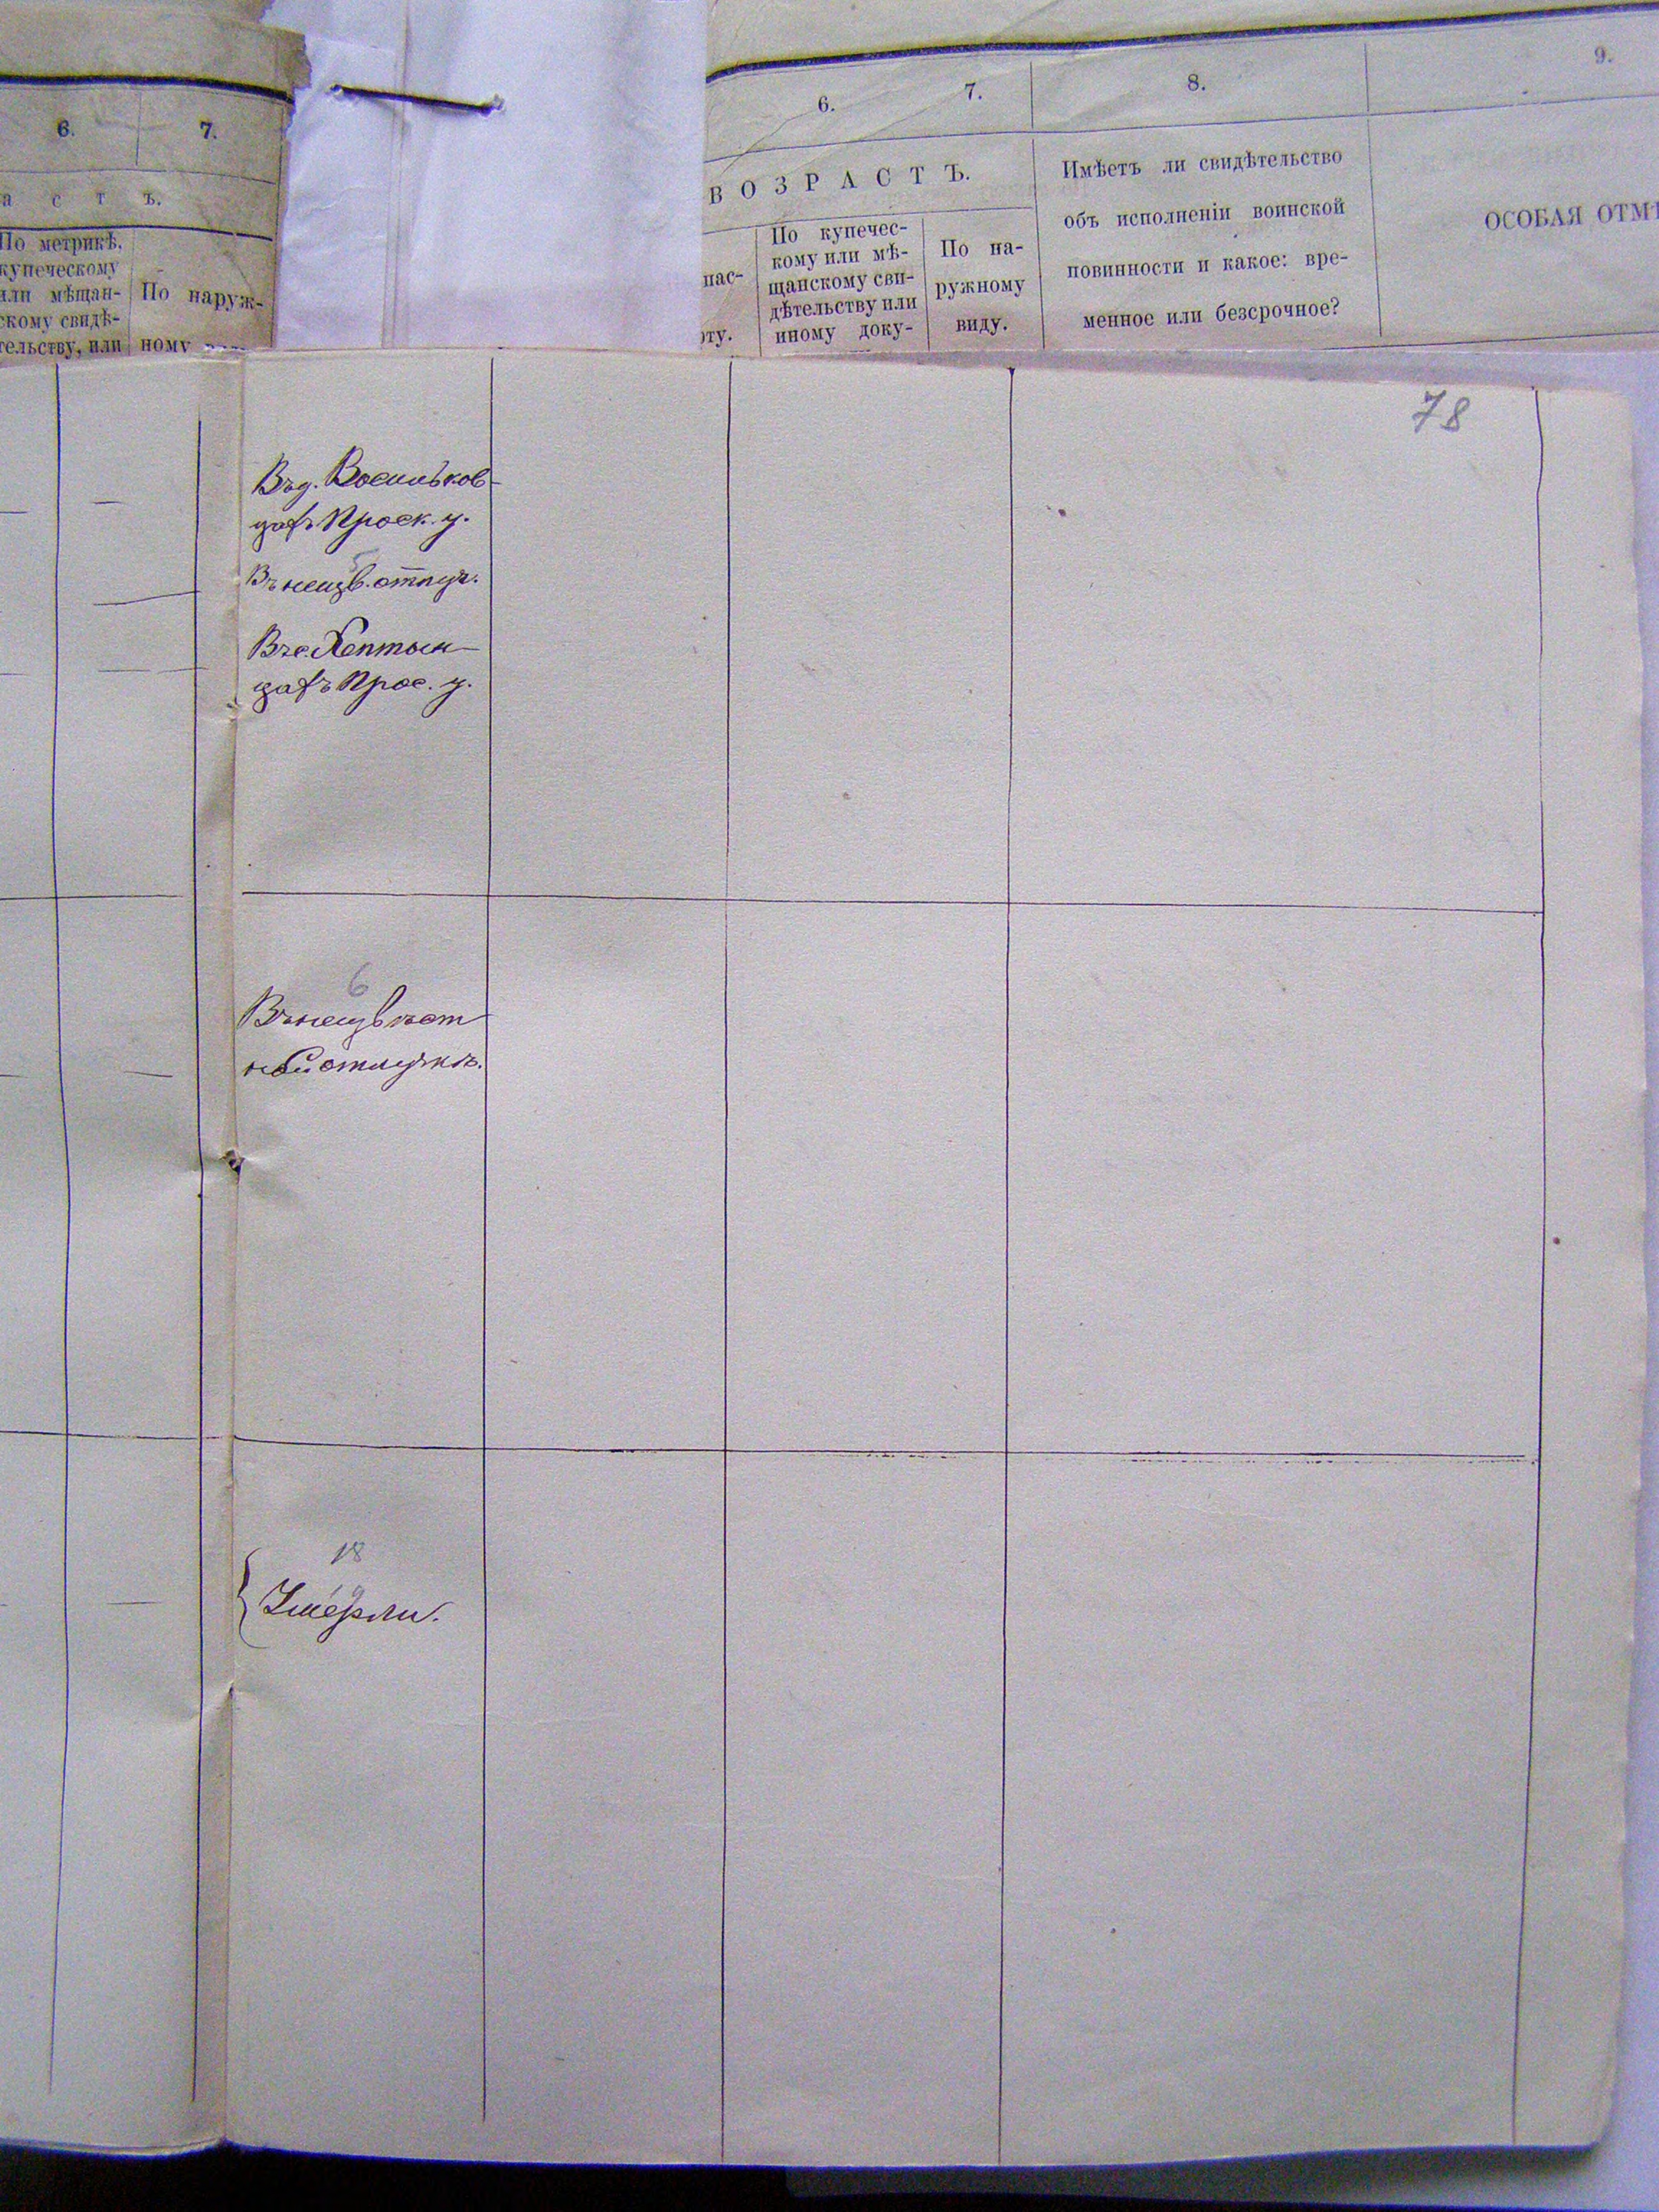 6.
7.
а с т ъ.
По метрикѣ,
купеческому
или мѣщан-
скому свидѣ-
тельству, или
По наруж-
ному
6.
7.
8.
9.
ВОЗРАСТЪ.
пас-
рту.
По купечес-
кому или мѣ-
щанскому сви-
дѣтельству или
иному доку-
По на-
ружному
виду.
Имѣетъ ли свидѣтельство
объ исполненіи воинской
повинности и какое: вре-
менное или безсрочное?
ОСОБАЯ ОТМѢ
78
Въ д. Васильков-
цахъ Проск. у.
5
Въ неизв. отлуч.
Въ с.
цахъ Прос. у.
6
Въ неизвѣст
ной отлучкѣ.
18
Умерли.